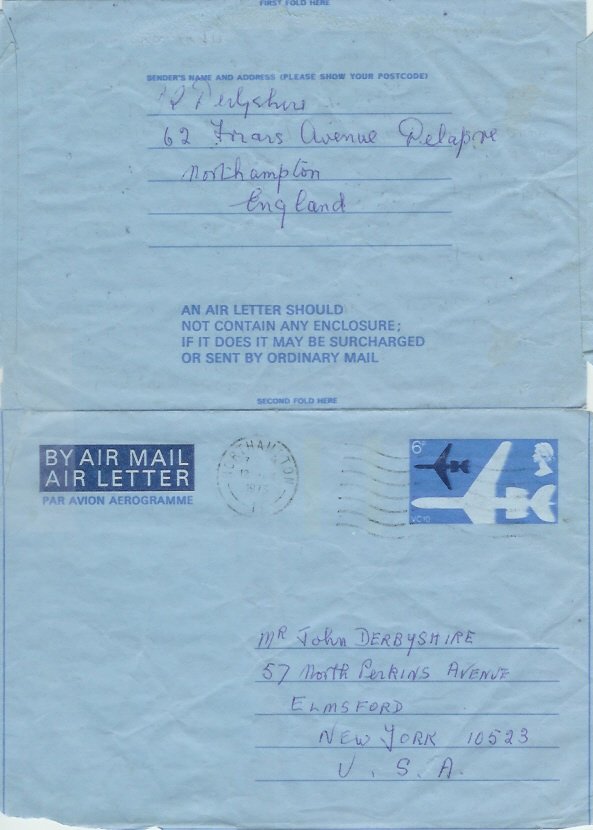 FIRST FOLD HERE
SENDER'S NAME AND ADDRESS (PLEASE SHOW YOUR POSTCODE)
Derbyshire
62 Friars Avenue Delapre
Northampton
England
AN AIR LETTER SHOULD
NOT CONTAIN ANY ENCLOSURE;
IF IT DOES IT MAY BE SURCHARGED
OR SENT BY ORDINARY MAIL
SECOND FOLD HERE
BY AIR MAIL
AIR LETTER
PAR AVION AEROGRAMME
NORTHAMPTON
6D
VC10
MR John DERBYSHIRE
57 North PERKINS AVENUE
ELMSFORD
NEW YORK 10523
U. S. A.